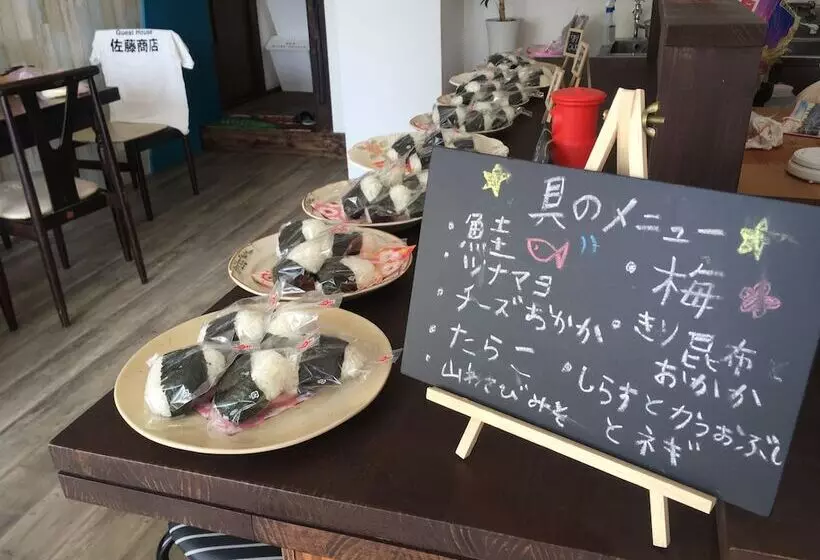 Guest House
佐藤商店
具のメニュー
・鮭
・ツナマヨ
・チーズおかか
・たらこ
・山わさびみそ
・梅
・きり昆布と
おかか
・しらすとかつおぶし
とネギ